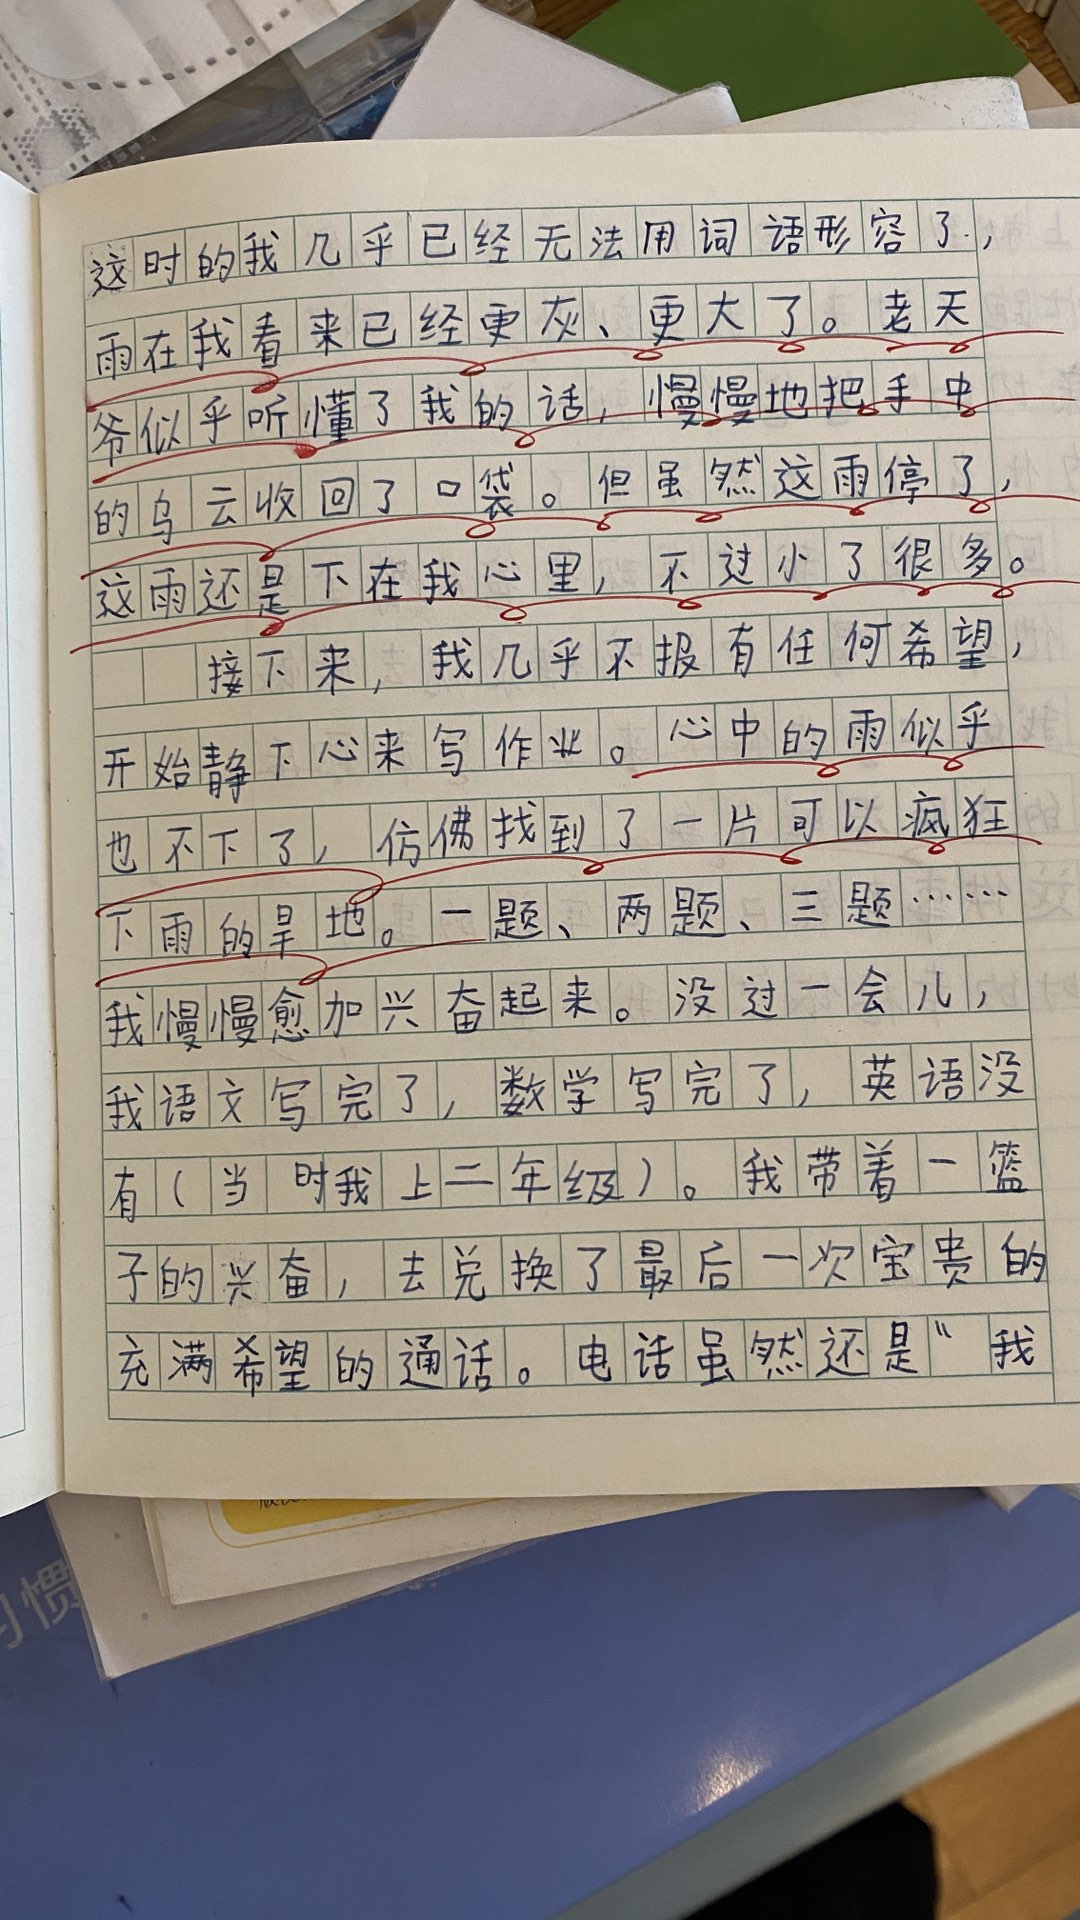 这时的我几乎已经无法用词语形容了，
雨在我看来已经更灰、更大了。老天
爷似乎听懂了我的话，慢慢地把手中
的乌云收回了口袋。但虽然这雨停了，
这雨还是下在我心里，不过小了很多。
接下来，我几乎不报有任何希望，
开始静下心来写作业。心中的雨似乎
也不下了，仿佛找到了一片可以疯狂
下雨的旱地。一题、两题、三题……
我慢慢愈加兴奋起来。没过一会儿，
我语文写完了，数学写完了，英语没
有（当时我上二年级）。我带着一篮
子的兴奋，去兑换了最后一次宝贵的
充满希望的通话。电话虽然还是“我
习惯